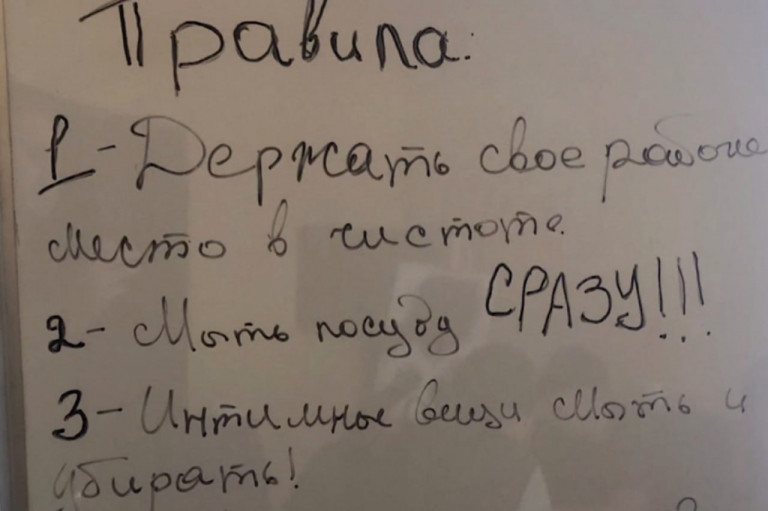 Правила:
1 - Держать свое рабоче
место в чистоте.
2 - Мыть посуду СРАЗУ!!!
3 - Интимные вещи мыть и
убирать!